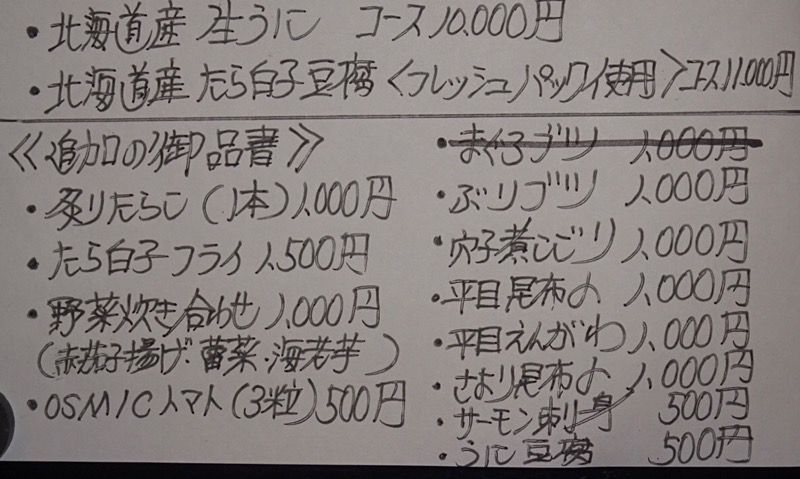 ・北海道産 生うに コース10,000円
・北海道産 たら白子豆腐<フレッシュパック使用>コース11,000円
≪追加の御品書≫
・炙りたらこ(1本)1,000円
・たら白子フライ 1,500円
・野菜炊き合わせ 1,000円
(赤茄子揚げ・蕾菜・海老芋)
・OSMICトマト(3粒)500円
・まぐろブツ 1,000円
・ぶりブツ 1,000円
・穴子煮こごり 1,000円
・平目昆布〆 1,000円
・平目えんがわ 1,000円
・さより昆布〆 1,000円
・サーモン刺身 500円
・うに豆腐 500円